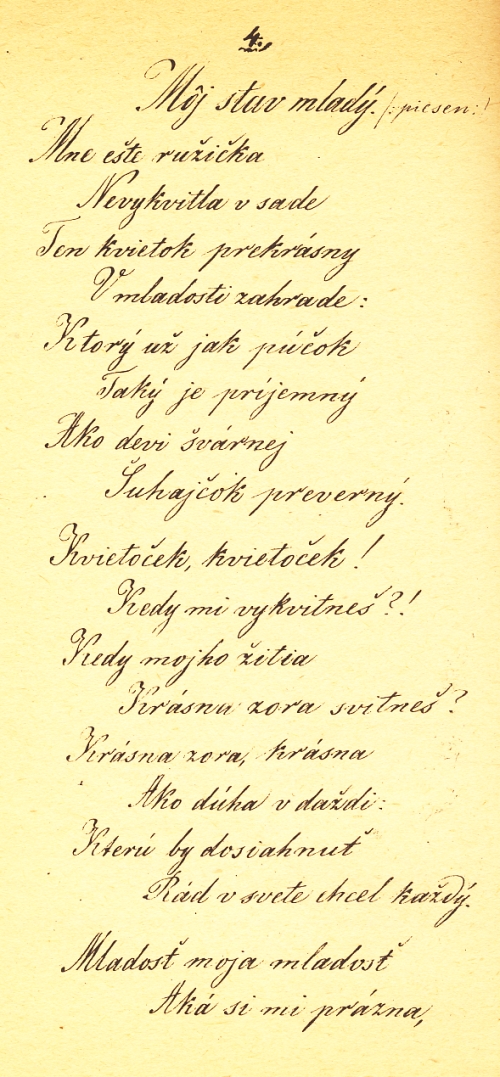 4.,
Môj stav mladý. /:piesen:/
Mne ešte ružička
Nevykvitla v sade
Ten kvietok prekrásny
V mladosti zahrade:
Ktorý už jak púčok
Taký je príjemný
Ako devi švárnej
Šuhajčok preverný.
Kvietoček, kvietoček!
Kedy mi vykvitneš?!
Kedy mojho žitia
Krásna zora svitneš?
Krásna zora, krásna
Ako dúha v daždi:
Kterú by dosiahnuť
Rád v svete chcel každý.
Mladosť moja mladosť
Aká si mi prázna,